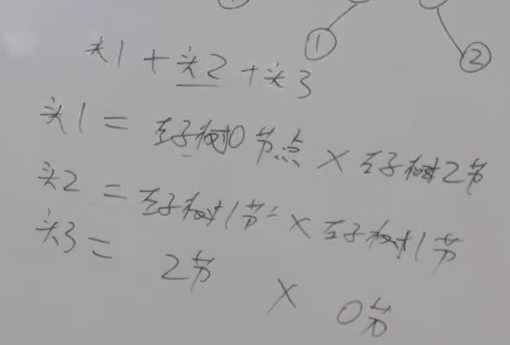 ① ②
头1 + 头2 + 头3
头1 = 左子树0节点 × 右子树2节
头2 = 左子树1节 × 右子树1节
头3 = 2节 × 0节